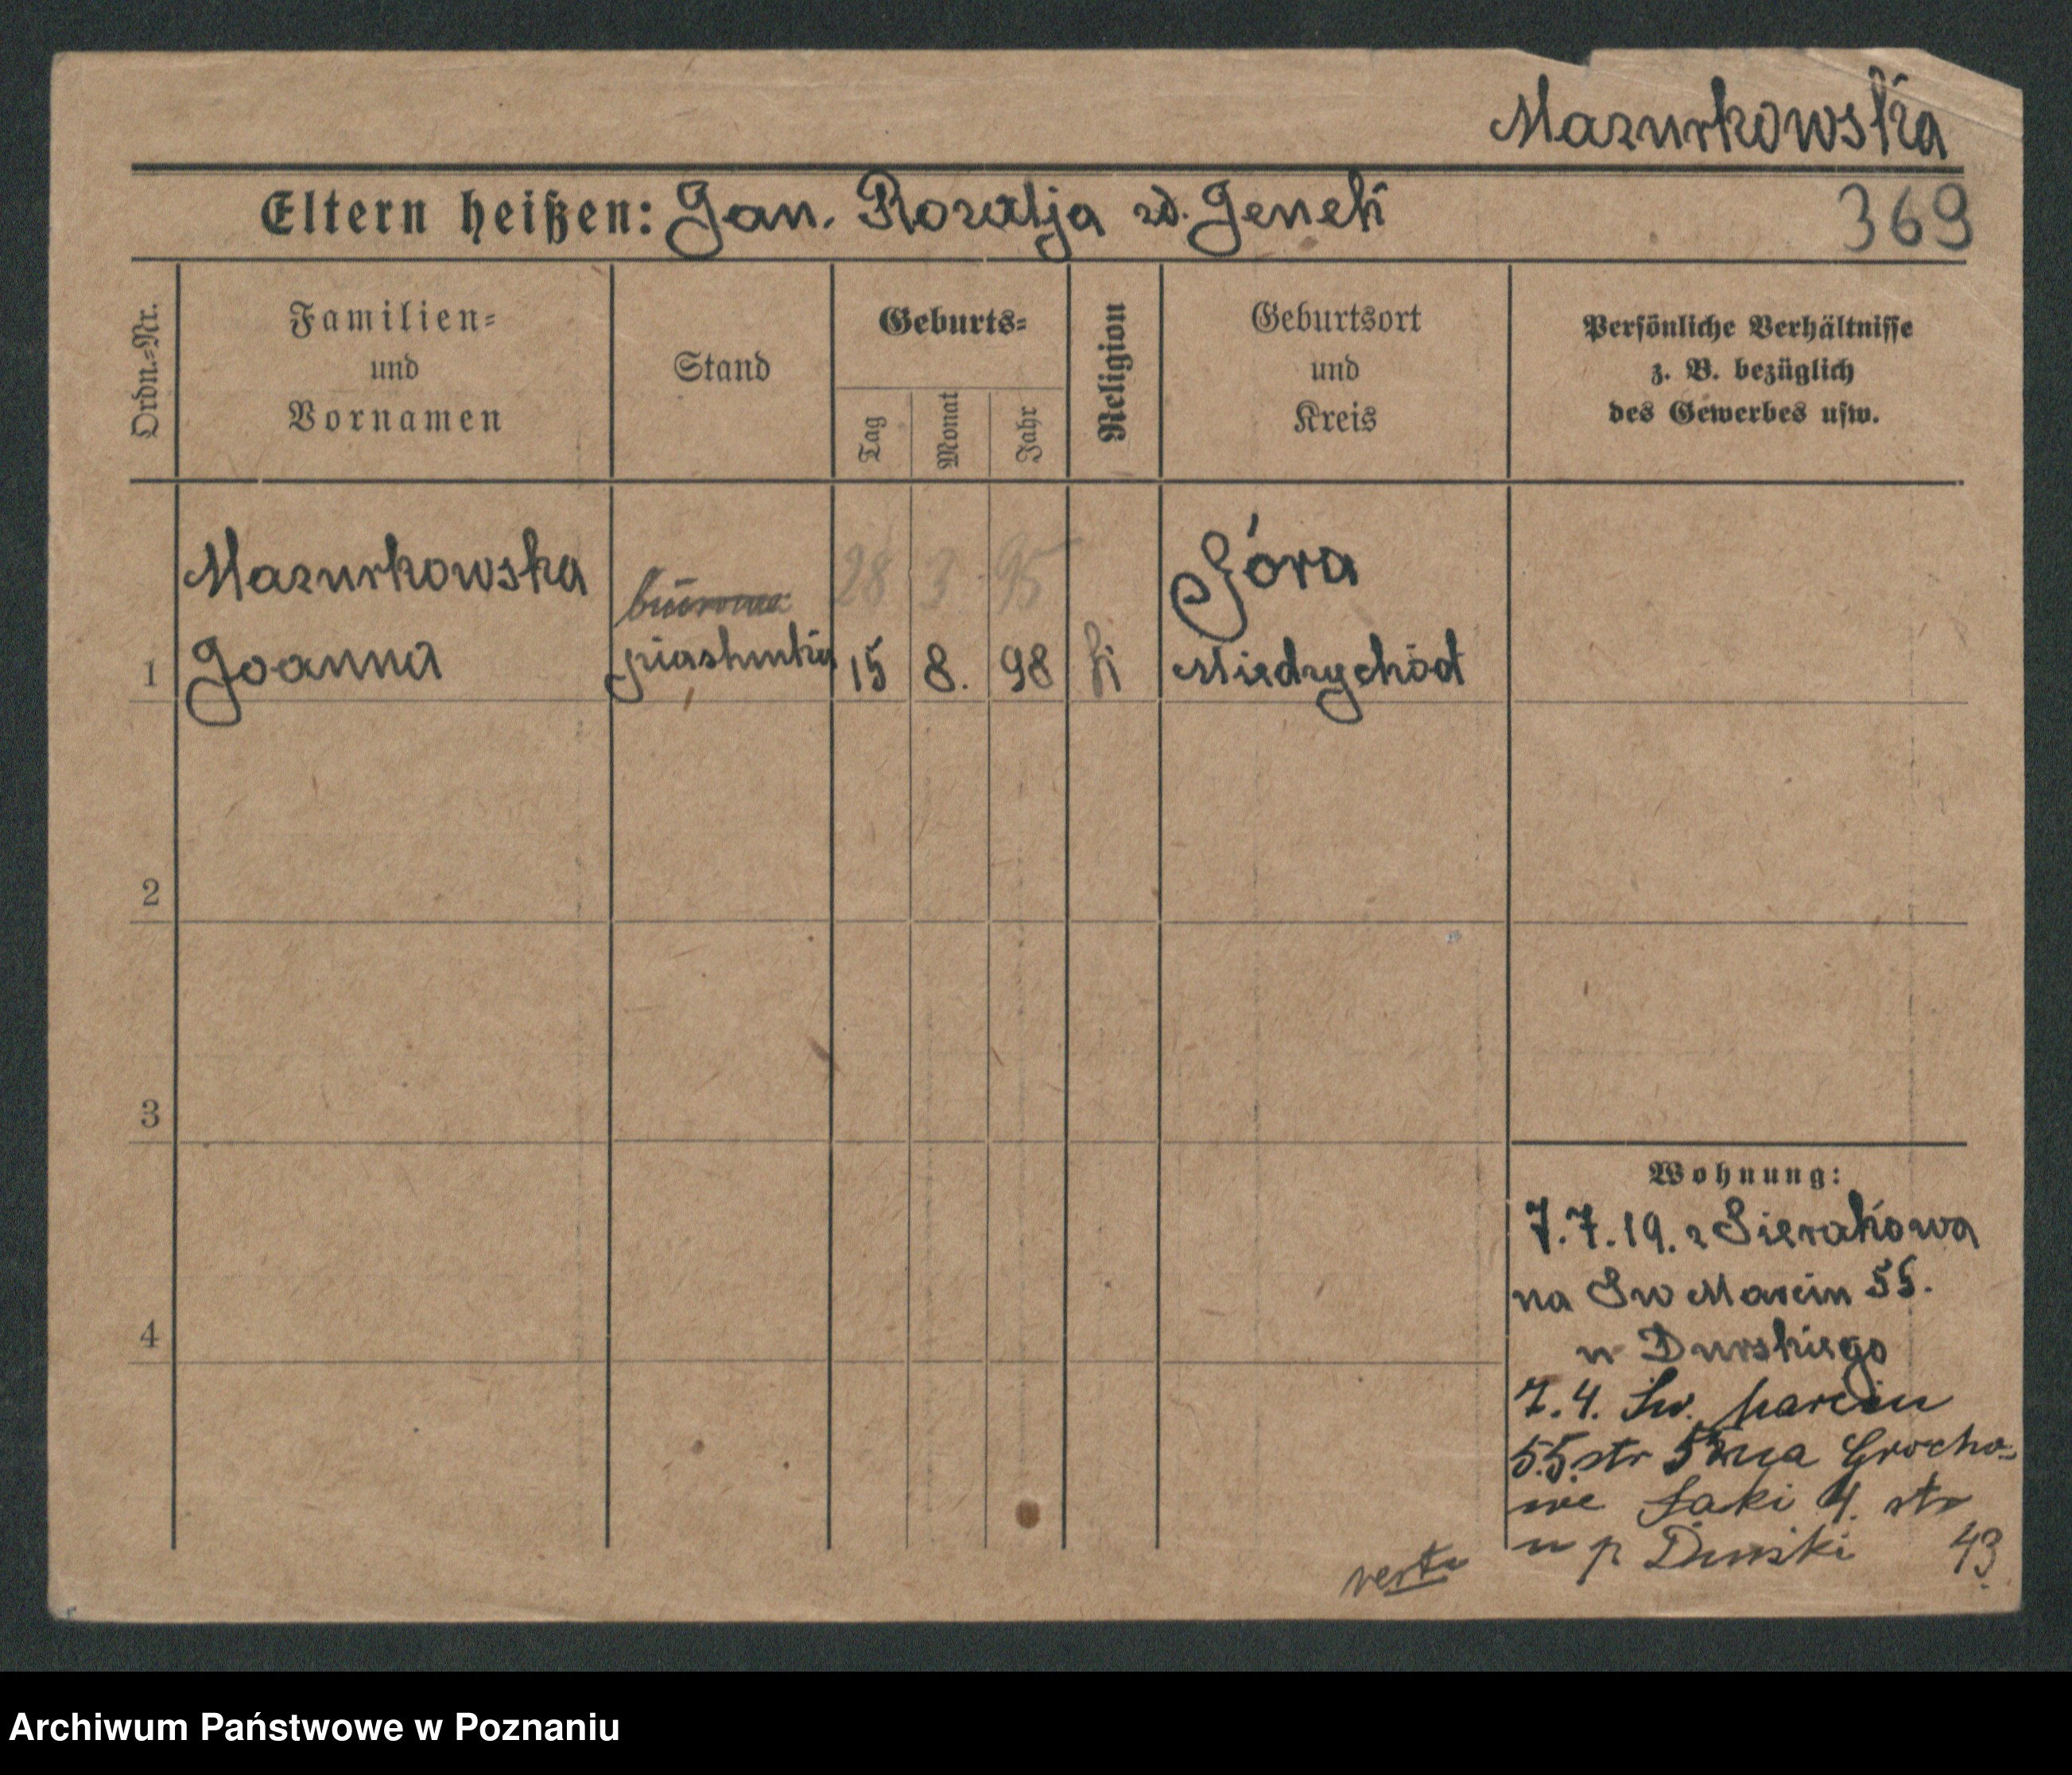 Mazurkowska
Eltern heißen: Jan. Rozalja zd. Jenek
369
Ordn.=Nr.
Familien=
und
Vornamen
Stand
Geburts=
Tag
Monat
Jahr
Religion
Geburtsort
und
Kreis
Persönliche Verhältnisse
z. B. bezüglich
des Gewerbes usw.
Mazurkowska
28 3 95
Góra
1 Joanna piastunka 15 8. 98 k Miedzychód
2
3
4
Wohnung:
7.7.19. z Sierakowa
na Sw Marcin 55.
u Durskiego
7.4. Sw. Marcin
55. str na Grocho=
we Łaki 4. str
u p Durski 43.
verte
Archiwum Państwowe w Poznaniu